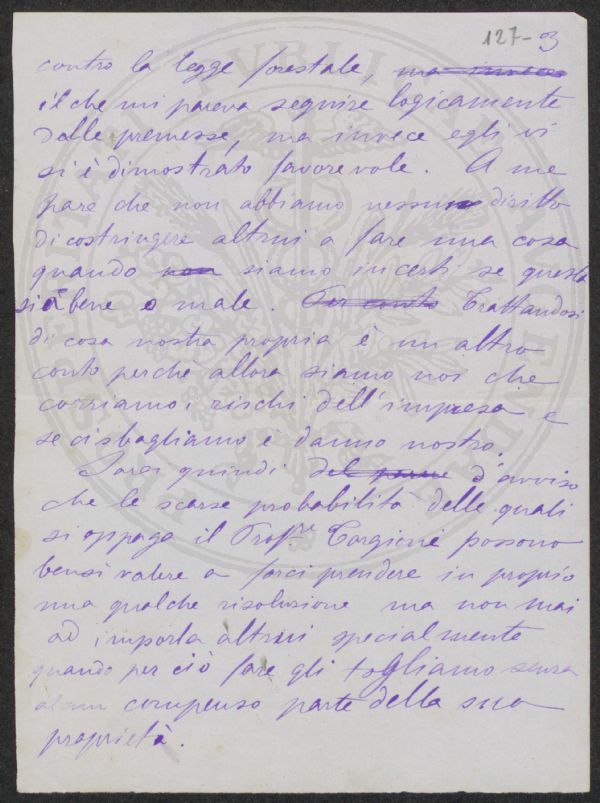 127-3
contro la legge forestale, ma invece
il che mi pareva seguire logicamente
dalle premesse, ma invece egli vi
si è dimostrato favorevole. A me
pare che non abbiamo nessun diritto
di costringere altrui a fare una cosa
quando non siamo incerti se questa
sia bene o male. Per conto Trattandosi
di cosa nostra propria è un altro
conto perchè allora siamo noi che
corriamo i rischi dell'impresa e
se ci sbagliamo è danno nostro.
Sarei quindi del parere d'avviso
che le scarse probabilità delle quali
si appaga il Profre. Targioni possono
bensì valere a farci prendere in proprio
una qualche risoluzione ma non mai
ad imporla altrui specialmente
quando per ciò fare gli togliamo senza
alcun compenso parte della sua
proprietà.